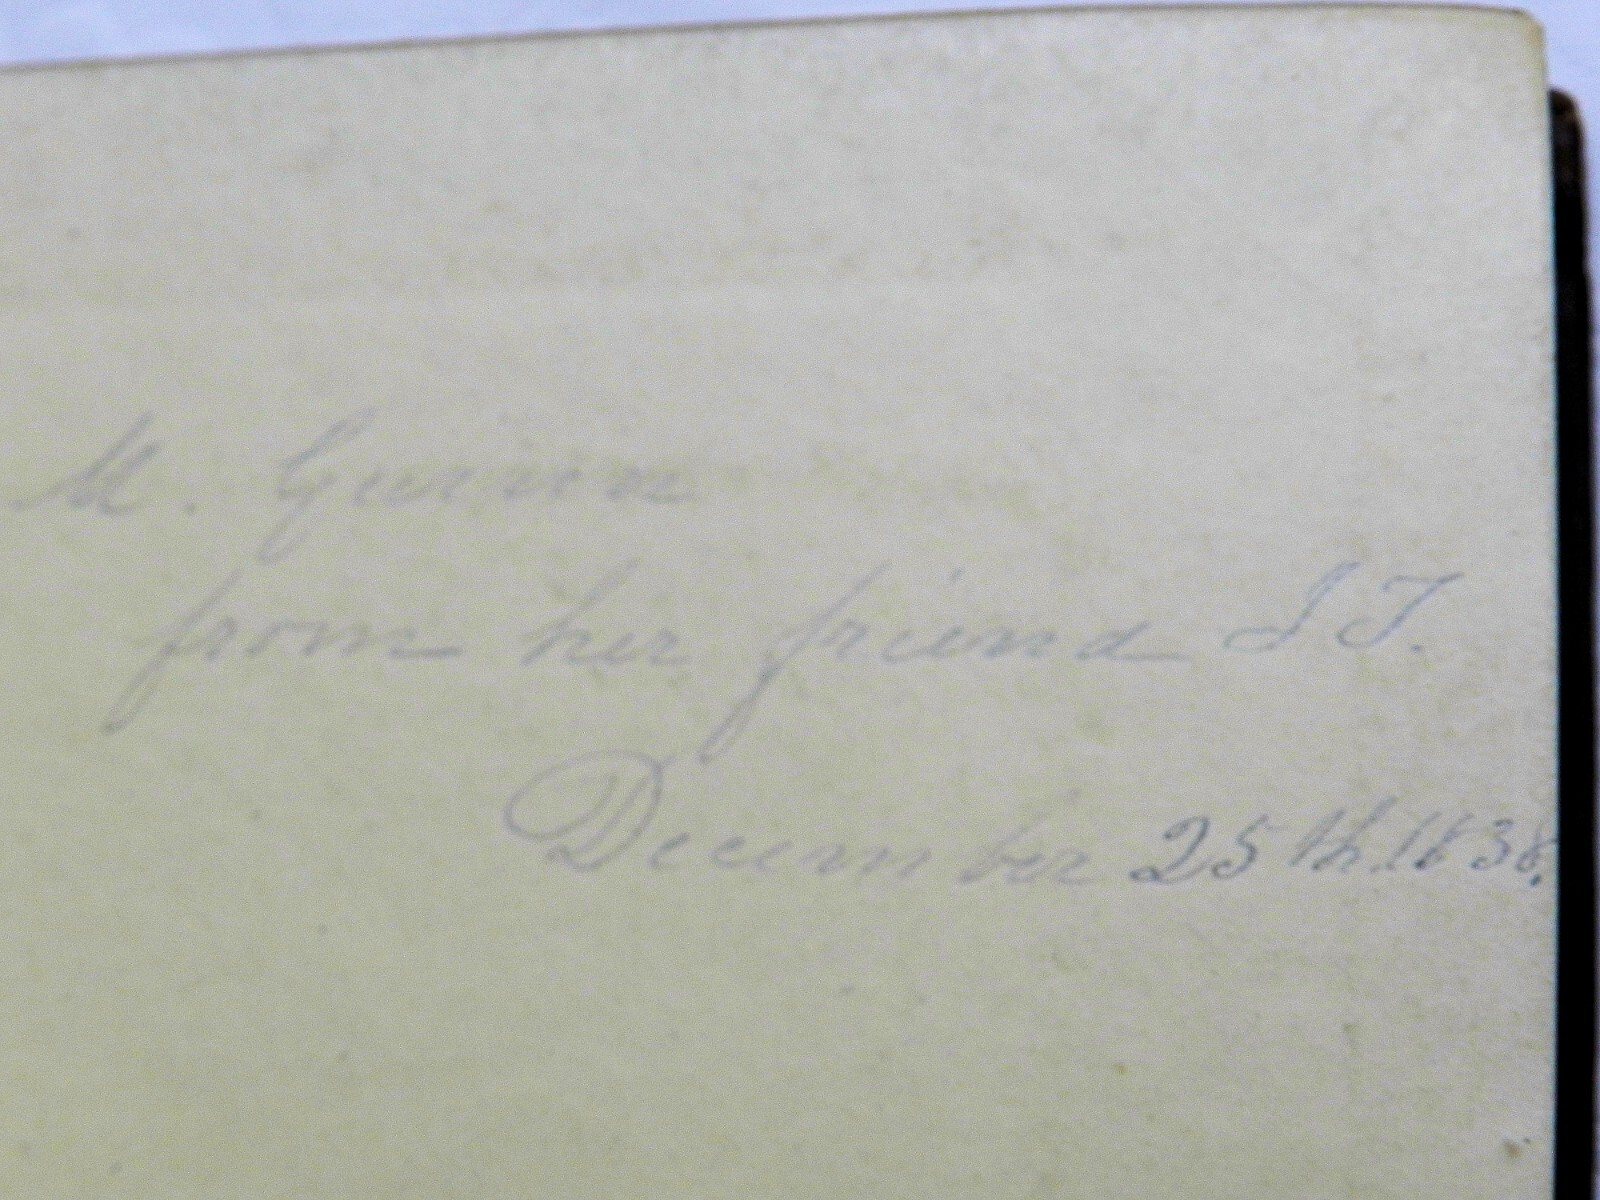 M.
from her friend J T.
December 25th 1838.